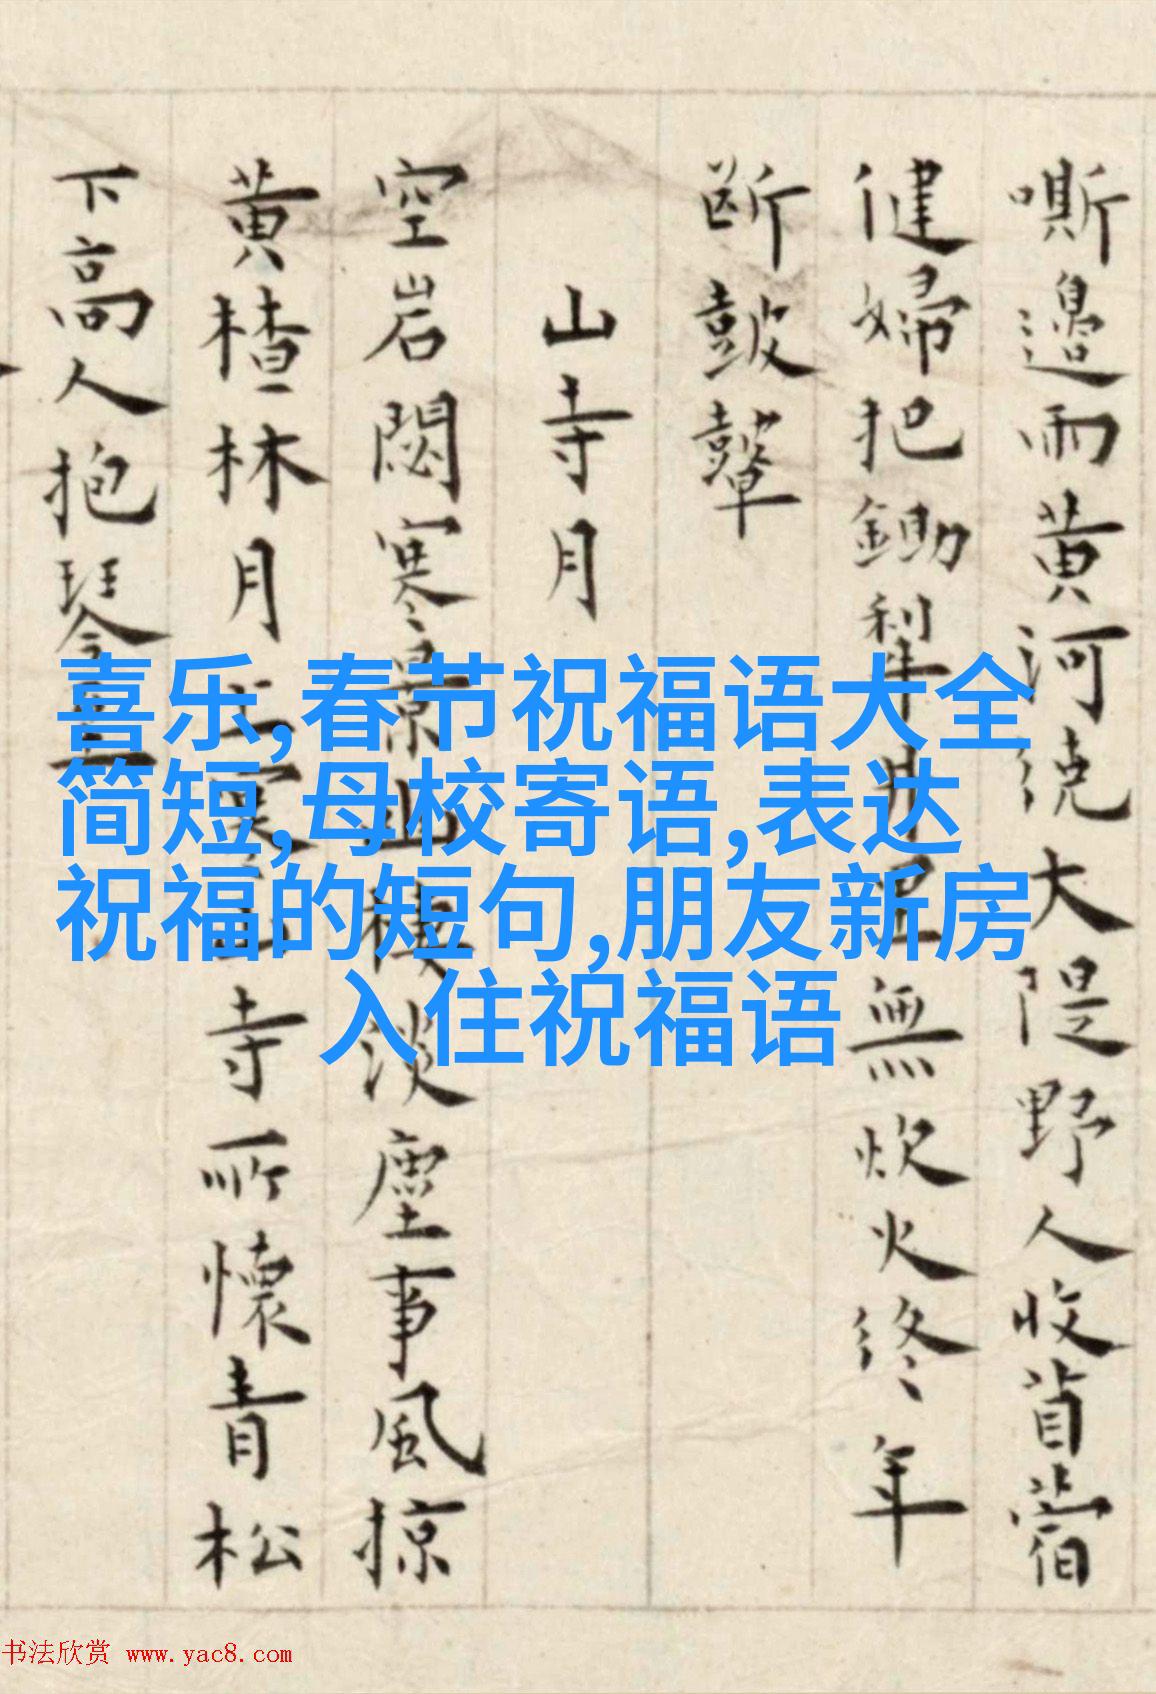 嘶邉雨黄河繞大隄野人收苜蓿
健婦把鋤犁井里無炊火終年
断鼓鼙
山寺月
空岩閟寒景山棲淡塵事風掠
黄楂林月上雲寺所懷青松
下高人抱琴至
喜乐,春节祝福语大全
简短,母校寄语,表达
祝福的短句,朋友新房
入住祝福语
书法欣赏 www.yac8.com